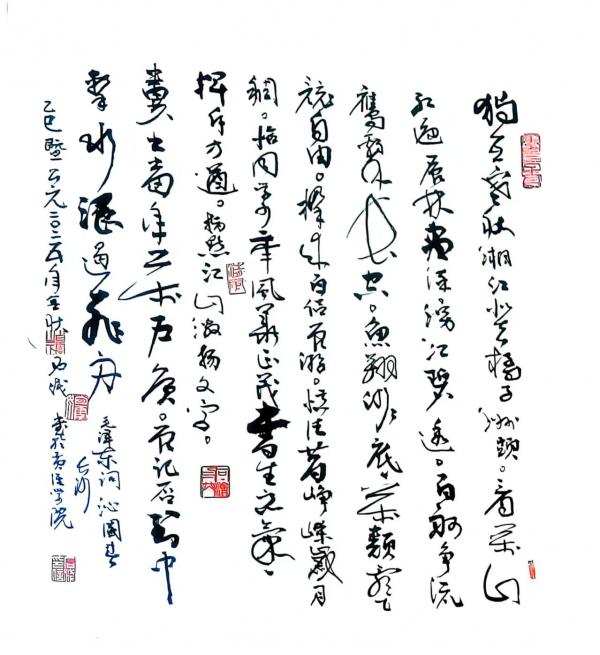 独立寒秋湘江北去橘子洲头。看万山
红遍层林尽染漫江碧透。百舸争流
鹰击长空。鱼翔浅底。万类霜天
竞自由。携来百侣曾游。忆往昔峥嵘岁月
稠。恰同学少年风华正茂书生意气
挥斥方遒。指点江山激扬文字。
粪土当年万户侯。曾记否到中
击水浪遏飞舟
毛泽东词沁园春
长沙
乙巳暨公元二〇二五年金秋
书于学院